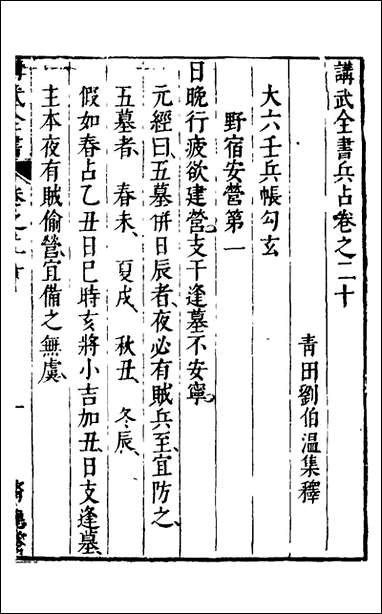 講武全書兵占卷之二十
青田劉伯温集釋
大六壬兵帳勾玄
野宿安營第一
日晚行疲欲建營支干逢墓不安寧
元經曰五墓併日辰者夜必有賊兵至宜防之
五墓者 春未 夏戌 秋丑 冬辰
假如春占乙丑日巳時亥將小吉加丑日支逢墓
主本夜有賊偷營宜備之無虞
武全書
卷之二十
一